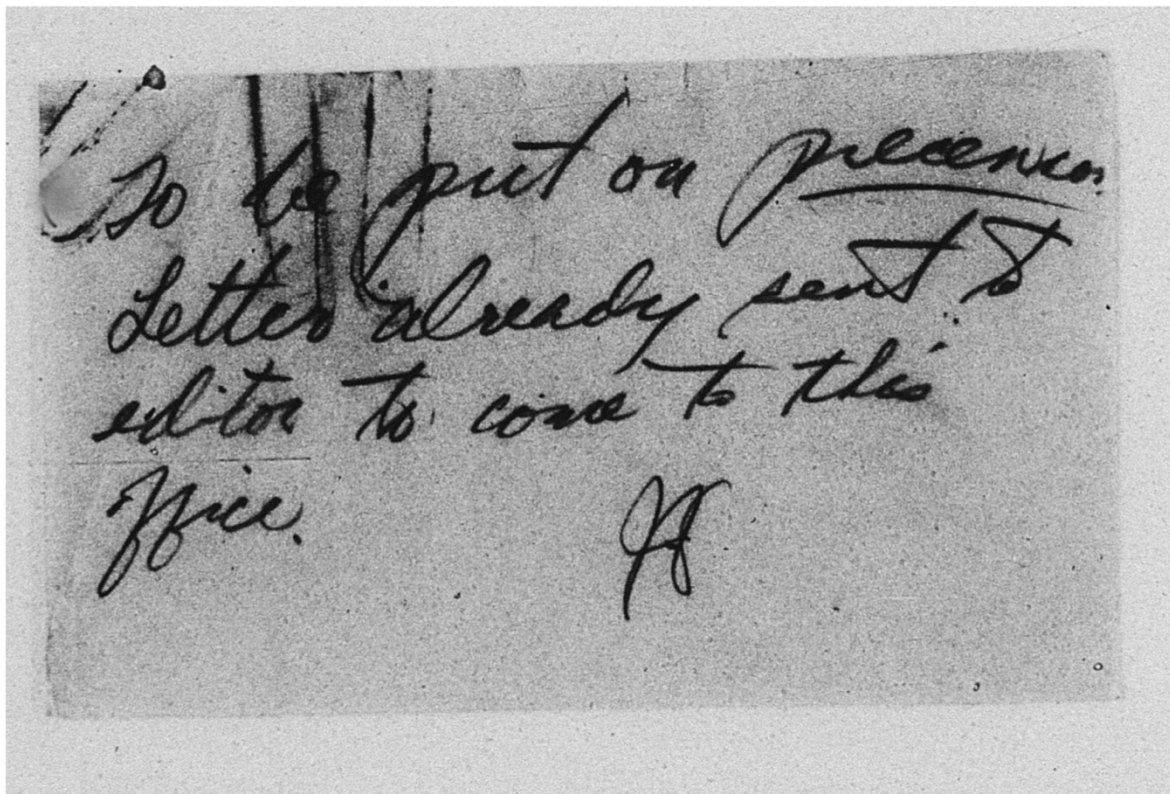 To be put on
Letter already sent to
editor to come to this
office.